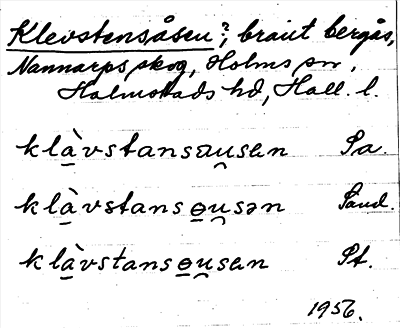 Klevstensåsen?, brant bergås,
Nannarps skog, Holms sn,
Halmstads hd, Hall. l.
klàvstansausen Pa.
klàvstansɵusən Pand.
klàvstansɵusen Pt.
1956.